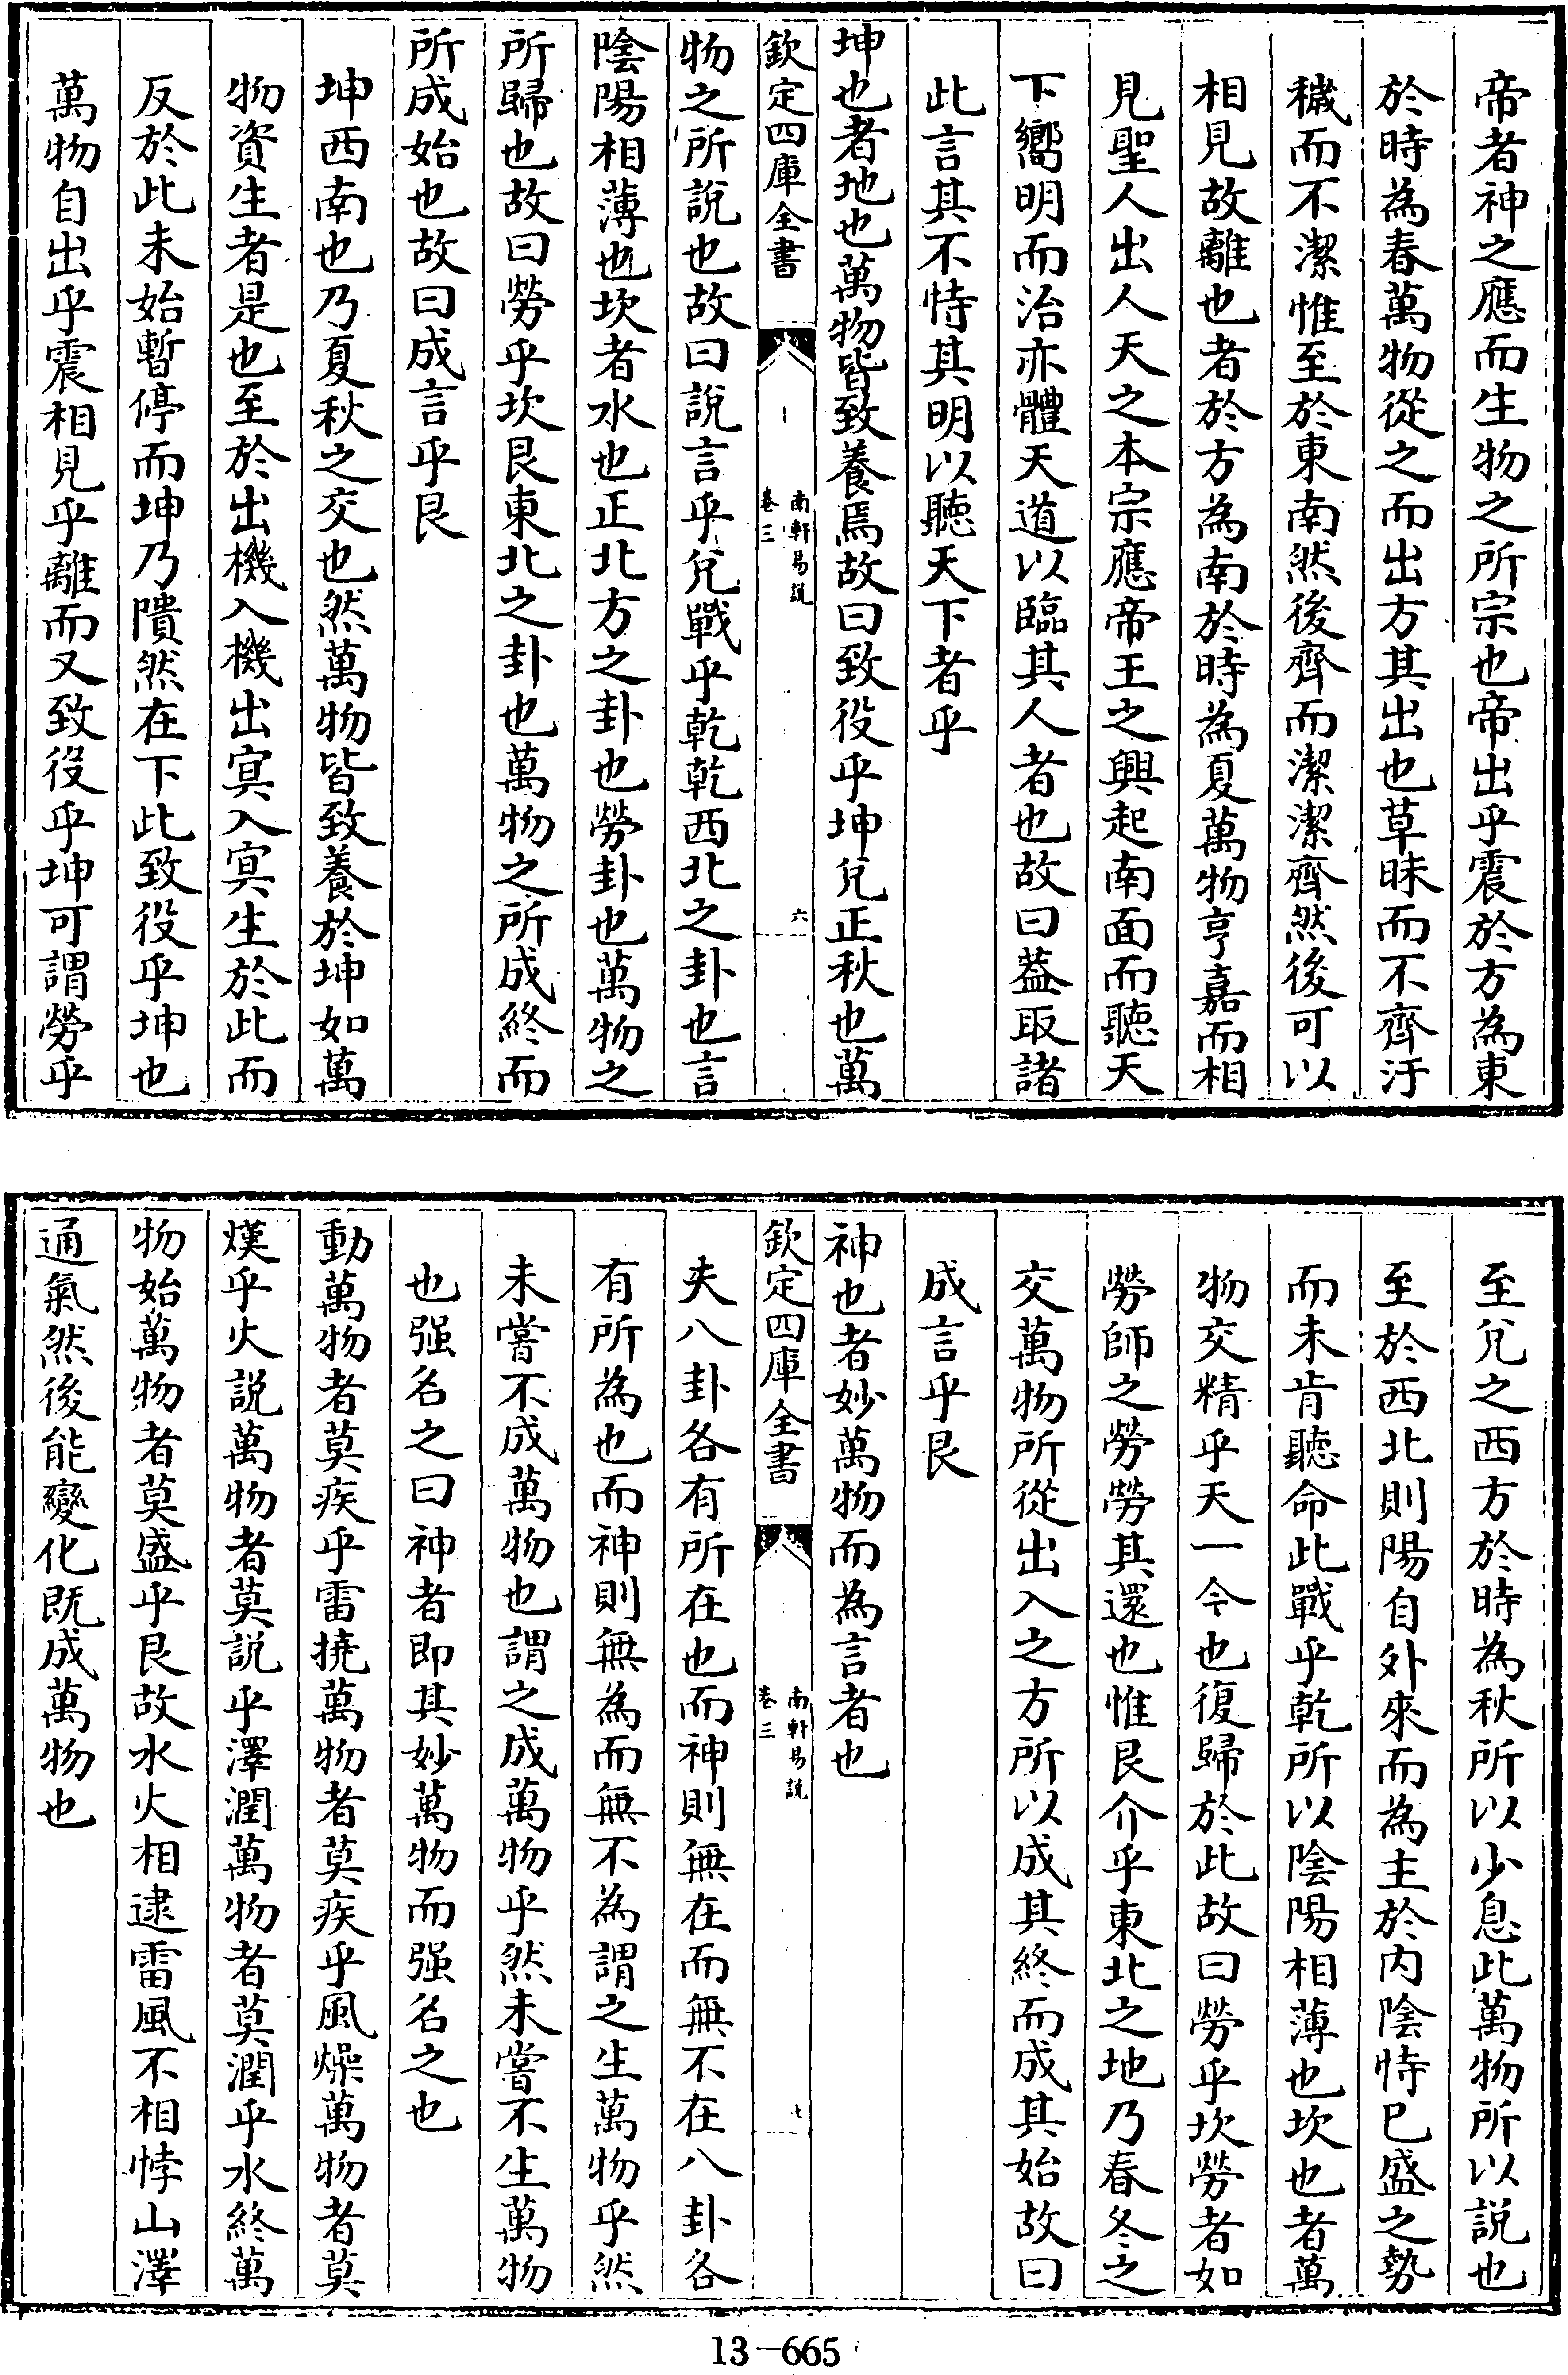 帝者神之應而生物之所宗也帝出乎震於方為東
於時為春萬物從之而出方其出也草昧而不齊汙
穢而不潔惟至於東南然後齊而潔潔齊然後可以
相見故離也者於方為南於時為夏萬物亨嘉而相
見聖人出人天之本宗應帝王之興起南面而聽天
下嚮明而治亦體天道以臨其人者也故曰蓋取諸
此言其不恃其明以聽天下者乎
坤也者地也萬物皆致養焉故曰致役乎坤兌正秋也萬
欽定四庫全書
南軒易說
卷三
六
物之所說也故曰說言乎兌戰乎乾乾西北之卦也言
陰陽相薄也坎者水也正北方之卦也勞卦也萬物之
所歸也故曰勞乎坎艮東北之卦也萬物之所成終而
所成始也故曰成言乎艮
坤西南也乃夏秋之交也然萬物皆致養於坤如萬
物資生者是也至於出機入機出冥入冥生於此而
反於此未始暫停而坤乃隤然在下此致役乎坤也
萬物自出乎震相見乎離而又致役乎坤可謂勞乎
至兌之西方於時為秋所以少息此萬物所以説也
至於西北則陽自外來而為主於内陰恃已盛之勢
而未肯聽命此戰乎乾所以陰陽相薄也坎也者萬
物交精乎天一今也復歸於此故曰勞乎坎勞者如
勞師之勞勞其還也惟艮介乎東北之地乃春冬之
交萬物所從出入之方所以成其終而成其始故曰
成言乎艮
神也者妙萬物而為言者也
欽定四庫全書
南軒易說
卷三
七
夫八卦各有所在也而神則無在而無不在八卦各
有所為也而神則無為而無不為謂之生萬物乎然
未嘗不成萬物也謂之成萬物乎然未嘗不生萬物
也强名之曰神者即其妙萬物而强名之也
動萬物者莫疾乎雷撓萬物者莫疾乎風燥萬物者莫
熯乎火説萬物者莫説乎澤潤萬物者莫潤乎水終萬
物始萬物者莫盛乎艮故水火相逮雷風不相悖山澤
通氣然後能變化既成萬物也
13-665